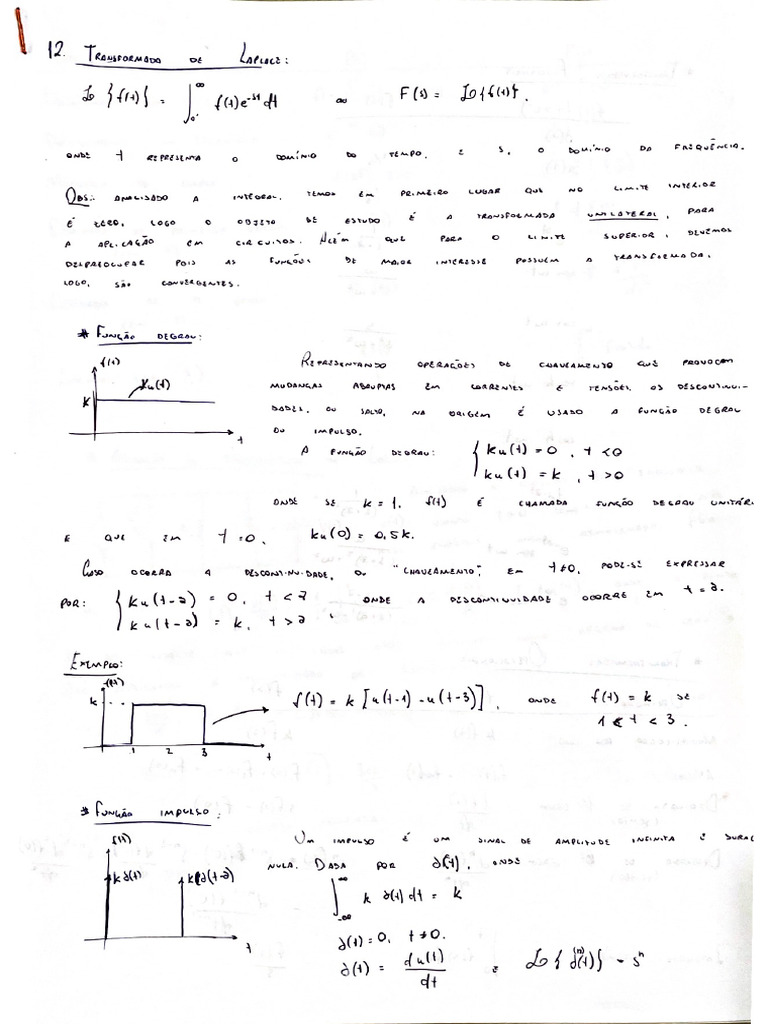 12. TRANSFORMADA DE LAPLACE:
ℒ{f(t)} = ∫₀⁻^∞ f(t)e^-st dt ou F(s) = ℒ{f(t)}.
ONDE t REPRESENTA O DOMÍNIO DO TEMPO, E S, O DOMÍNIO DA FREQUÊNCIA.
OBS: ANALISADO A INTEGRAL, TEMOS EM PRIMEIRO LUGAR QUE NO LIMITE INTERIOR
É ZERO, LOGO O OBJETO DE ESTUDO É A TRANSFORMADA UNILATERAL, PARA
A APLICAÇÃO EM CIRCUITOS. ALÉM QUE PARA O LIMITE SUPERIOR, DEVEMOS
DESPREOCUPAR POIS AS FUNÇÕES DE MAIOR INTERESSE POSSUEM A TRANSFORMADA,
LOGO, SÃO CONVERGENTES.
# FUNÇÃO DEGRAU:
f(t)
K
Ku(t)
t
REPRESENTANDO OPERAÇÕES DE CHAVEAMENTO QUE PROVOCAM
MUDANÇAS ABRUPTAS EM CORRENTES E TENSÕES, OS DESCONTINUI-
DADES, OU SALTO, NA ORIGEM É USADO A FUNÇÃO DEGRAU
OU IMPULSO.
A FUNÇÃO DEGRAU: { ku(t) = 0, t < 0
ku(t) = k, t > 0
ONDE SE k = 1, f(t) É CHAMADA FUNÇÃO DEGRAU UNITÁRI
E QUE EM t = 0, ku(0) = 0,5k.
CASO OCORRA A DESCONTINUIDADE, OU "CHAVEAMENTO", EM t≠0, PODE-SE EXPRESSAR
POR: { ku(t-a) = 0, t < a
ku(t-a) = k, t > a, ONDE A DESCONTINUIDADE OCORRE EM t = a.
EXEMPLO:
f(t)
k
1 2 3 t
f(t) = k [u(t-1) - u(t-3)], ONDE f(t) = k SE
1 < t < 3.
# FUNÇÃO IMPULSO:
f(t)
k∂(t) k∂(t-a)
t
UM IMPULSO É UM SINAL DE AMPLITUDE INFINITA E DURAÇ
NULA. DADA POR ∂(t), ONDE
∫₋∞^∞ k ∂(t) dt = k
∂(t) = 0, t ≠ 0.
∂(t) = du(t)/dt E ℒ{∂^(n)(t)} = s^n